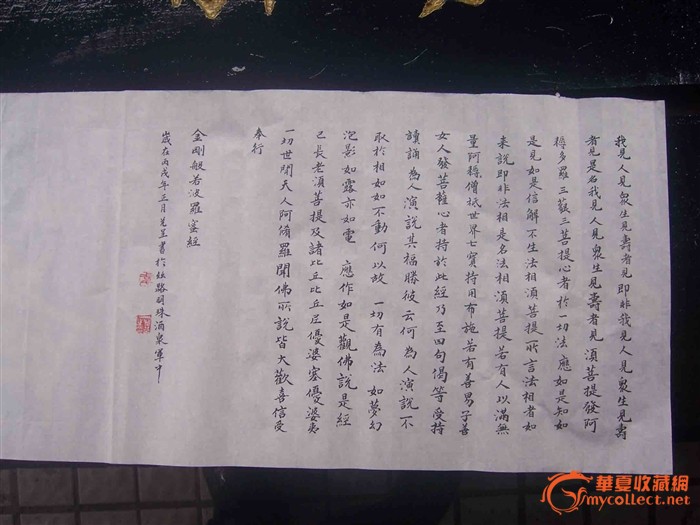 我見人見眾生見壽者見即非我見人見眾生見壽
者見是名我見人見眾生見壽者見須菩提發阿
耨多羅三藐三菩提心者於一切法應如是知如
是見如是信解不生法相須菩提所言法相者如
来說即非法相是名法相須菩提若有人以滿無
量阿耨僧祇世界七寶持用布施若有善男子善
女人發菩薩心者持於此經乃至四句偈等受持
讀誦為人演說其福勝彼云何為人演說不
取於相如如不動何以故 一切有為法 如夢幻
泡影如露亦如電 應作如是觀佛說是經
已長老須菩提及諸比丘比丘尼優婆塞優婆夷
一切世間天人阿脩羅聞佛所說皆大歡喜信受
奉行
金剛般若波羅蜜經
歲在丙戌年三月 書於 路明珠酒泉軍中
華夏收藏網
mycollect.net